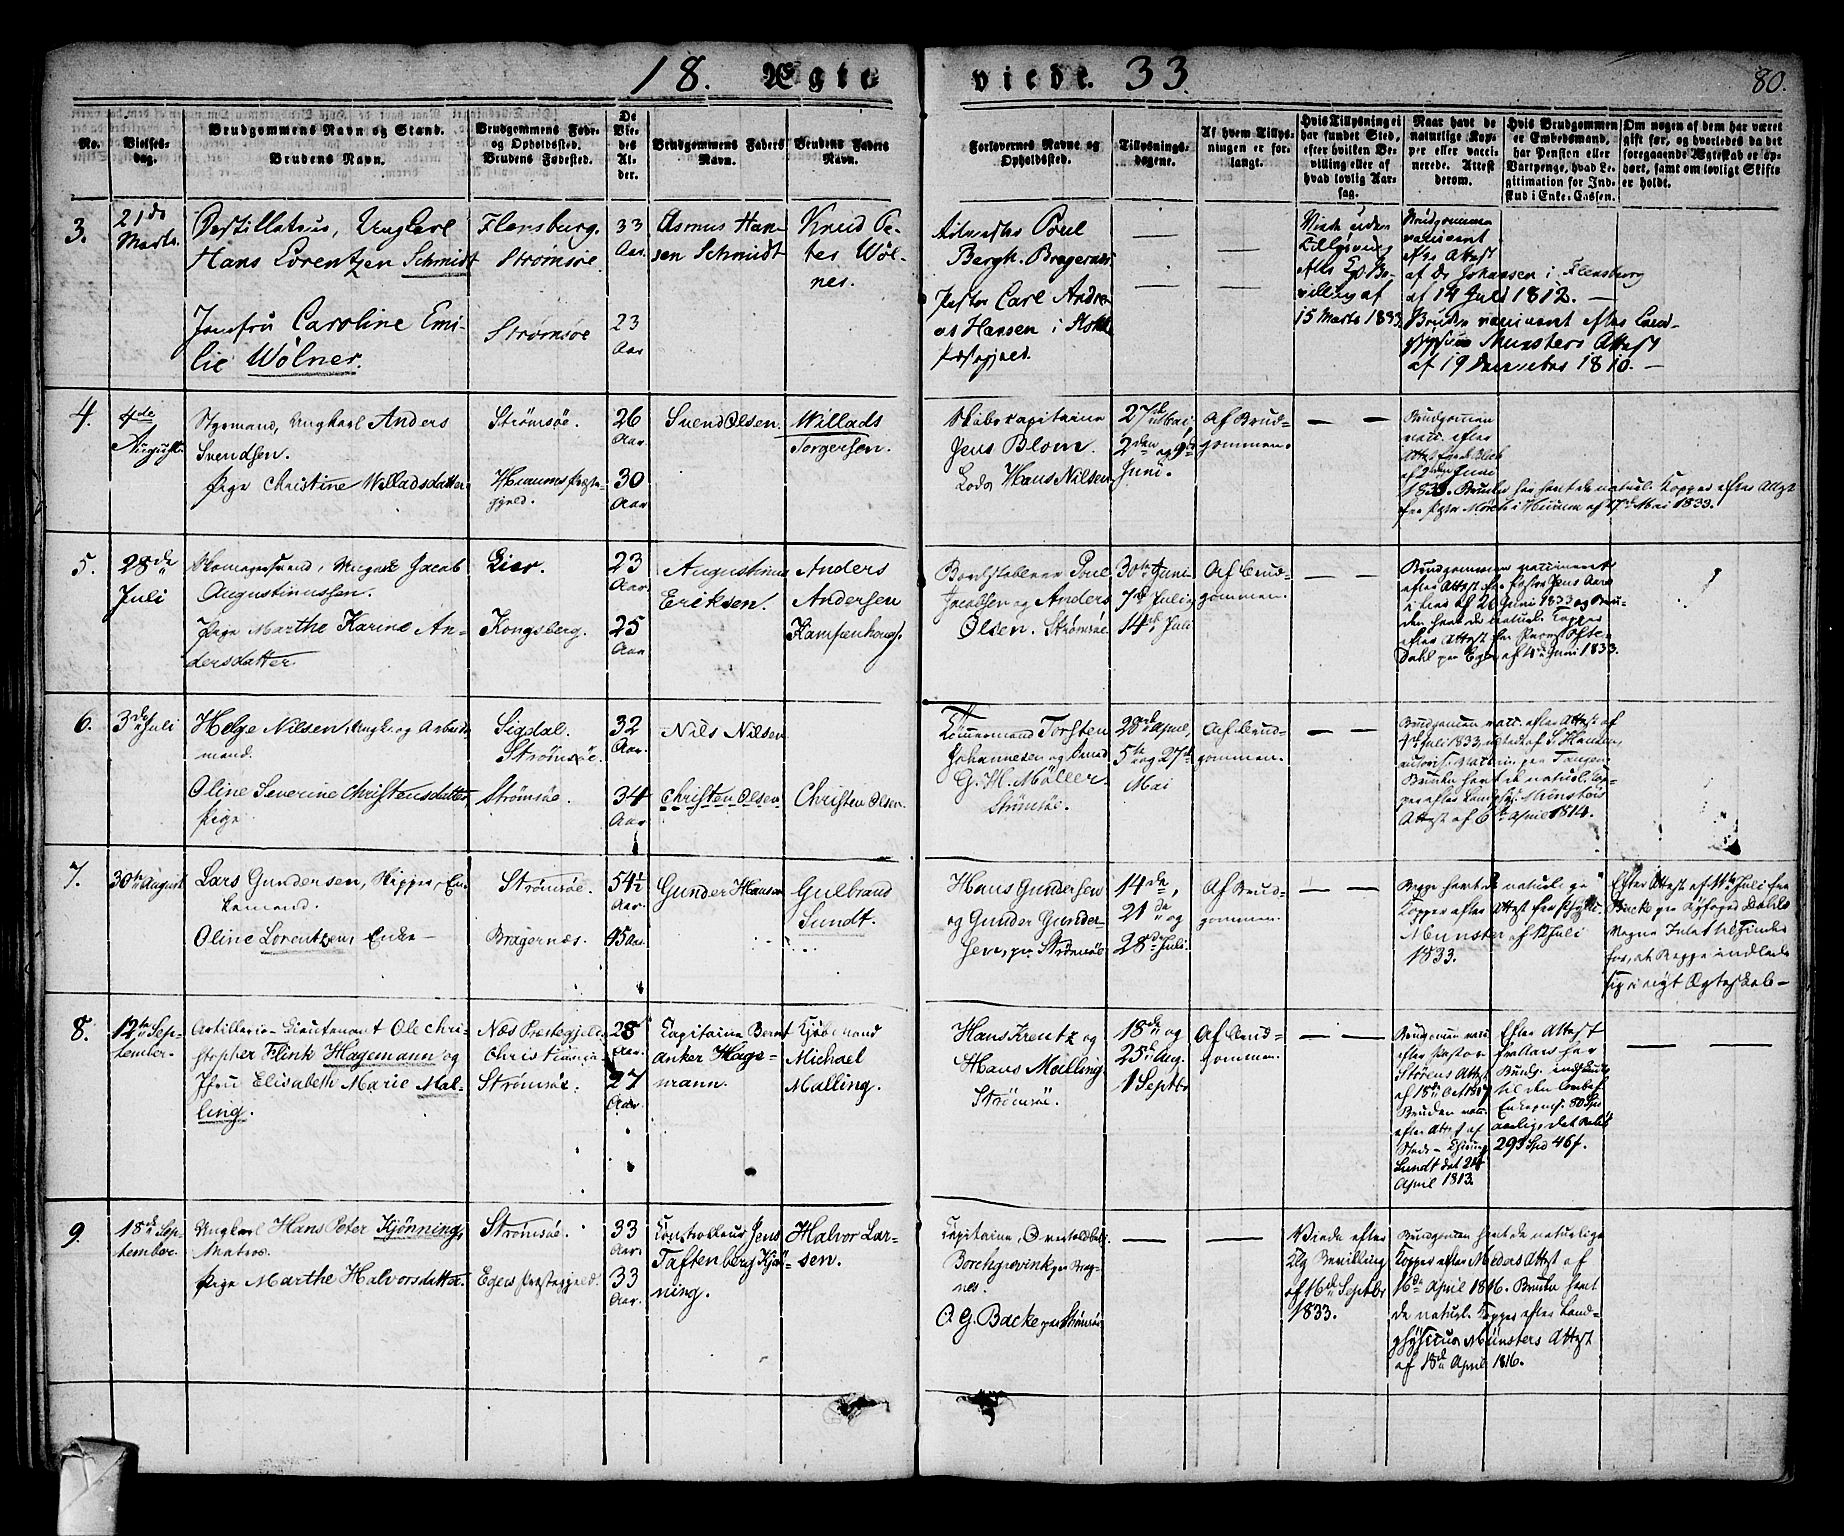 18. Ægte
viede. 33
80.
No.
Vielses-
dag.
Brudgommens Navn og Stand.
Brudens Navn.
Brudgommens Føde-
og Opholdsted.
Brudens Fødested.
De
Vie-
des
Al-
der.
Brudgommens Faders
Navn.
Brudens Faders
Navn.
Forlovernes Navne og
Opholdssted.
Tillysnings-
dagene.
Af hvem Tillys-
ningen er for-
langt.
Hvis Tillysning ei
har fundet Sted,
efter hvilken Be-
villing eller af
hvad lovlig Aar-
sag.
Naar havt de
naturlige Kop-
per eller vacci-
nerede. Attest
derom.
Hvis Brudgommen
er Embedsmand,
har Pension eller
Vartpenge, hvad Le-
gitimation for Ind-
skud i Enke-Cassen.
Om nogen af dem har været
gift før, og hvorledes da det
foregaaende Ægteskab er op-
hørt, samt om lovligt Skifte
er holdt.
3.
21de
Marts.
Destillateur, Ungkarl
Hans Lorentzen Schmidt
Jomfru Caroline Emi-
lie Wölner.
Flensburg.
Strømsøe.
Strømsøe
33
Aar.
23
Aar
Asmus Han-
sen Schmidt
Knud Pe-
ter Wöl-
ner.
Poul
Bergh. Bragernæs
Pastor Carl Andre-
as Hansen i
Viede uden
Tillysning
Bevilling af
15 Marts 1833
Brudgommen
vaccineret
efter Attest
af Dr Johansen i Flensburg
af 14 Juli 1812. —
Bruden vaccineret efter Land-
physicus Munsters Attest
af 19 December 1810. —
4.
4de
August.
Styrmand, Ungkarl Anders
Svendsen.
Pige Christine Willadsdatter
Strømsøe.
Hurums Præste-
gjeld.
26
Aar.
30
Aar
Svend Olsen.
Willads
Torgersen.
Skibscapitaine
Jens Blom.
Lods Hans Nilsen
27de Mai,
2den og 9de
Juni.
Af Brud-
gommen.
Brudgommen
vacc. efter
Attest
af 2den Juni
1833. Bruden har havt de naturl: Kopper efter Attest
fra Pastor Mørch i Hurum af 17de Mai 1833.
5.
28de
Juli
Skomagersvend, Ungkarl Jacob
Augustinussen.
Pige Marthe Karine An-
dersdatter.
Lier.
Kongsberg.
23
Aar.
25
Aar
Augustinus
Eriksen.
Anders
Andersen
Kampenhoug.
Bordstabler Poul
Jacobsen og Anders
Olsen. Strømsøe
30te Juni
7de Juli
14de Juli
Af Brud-
gommen.
Brudgommen vaccineret
efter Attest fra Pastor Jens Aars
i Lier af 26 Juni 1833 og Bru-
den havt de naturl: Kopper
efter Attest fra
Dahl paa Eger af 4de Juni 1833.
6.
3de Juli
Helge Nilsen, Ungk. og Arbeids-
mand.
Oline Severine Christensdatter
Pige.
Sigdal.
Strømsöe.
Strømsøe.
32
Aar.
34
Aar.
Nils Nilsen
Christen Olsen
Christen Olsen.
Tømmermand Torsten
Johannesen og
G. H. Møller.
Strømsøe.
28de April,
5te og 27de
Mai
Af Brud-
gommen.
Brudgommen vacc. efter Attest af
4de Juli 1833, udstedt af S. Hansen,
paa Tangen
Bruden havt de naturl: Kop-
per efter Landphys: Münsters
Attest af 6te April 1814.
7.
30te August
Lars Gundersen, Skipper, En-
kemand.
Oline Lorentzen, Enke —
Strømsøe.
Bragernæs.
54½
Aar.
45 Aar.
Gunder Hansen
Gulbrand
Sundt.
Hans Gundersen
og Gunder Gunder-
sen, paa Strømsöe
14de,
21de og
28de Juli.
Af Brud-
gommen.
Begge havt de naturlige
Kopper efter Attest fra Physic:
Munster af 12 Juli
1833.
Efter Attest af 11te Juli fra
Backe paa Byfoged Dahls
Vegne Intet til Hinder
for, at Begge indlade
sig i nyt Ægteskab —
8.
12te Sep-
tember.
Artillerie-Lieutenant Ole Chri-
stopher Flink Hagemann og
Jfru Elisabeth Marie Mal-
ling.
Næs Præstegjeld
Christiania
Strømsøe.
28
Aar.
27
Aar.
Capitaine Bernt
Anker Hage-
mann.
Kjøbmand
Michael
Malling.
Hans Kreutz og
Hans Malling
Strømsöe.
18de og
25de Aug.
1 Septbr
Af Brud-
gommen.
Brudgommen vacc.
efter Pastor
Störens Attest
af 18de Oct 1807
Bruden vacc.
efter Attest af
Stads-Chirurg
Lundt det 24
April 1813.
Efter Attest
har
Brudg. indskudt
til den
Enkepens. 80 Spd
aarlig, det Beløb
293 Spd 46 f.
9.
18de Sep-
tember.
Ungkarl Hans Peter Kjønning,
Matros.
Pige Marthe Halvorsdatter.
Strømsöe.
Egers Præstegjeld.
33
Aar.
33
Aar.
Controlleur Jens
Taftenberg Kjö-
ning.
Halvor Lar-
sen.
Capitaine,
Borchgrevink paa Brag-
nes.
O. G. Backe paa Strømsøe
Viede efter
Klg Bevilling
af 6te Septbr
1833.
Brudgommen havt de naturlige
Kopper efter Meders Attest af
16de April 1816. Bruden havt
de naturl. Kopper efter Land-
physicus Münsters Attest
af 18de April 1816.